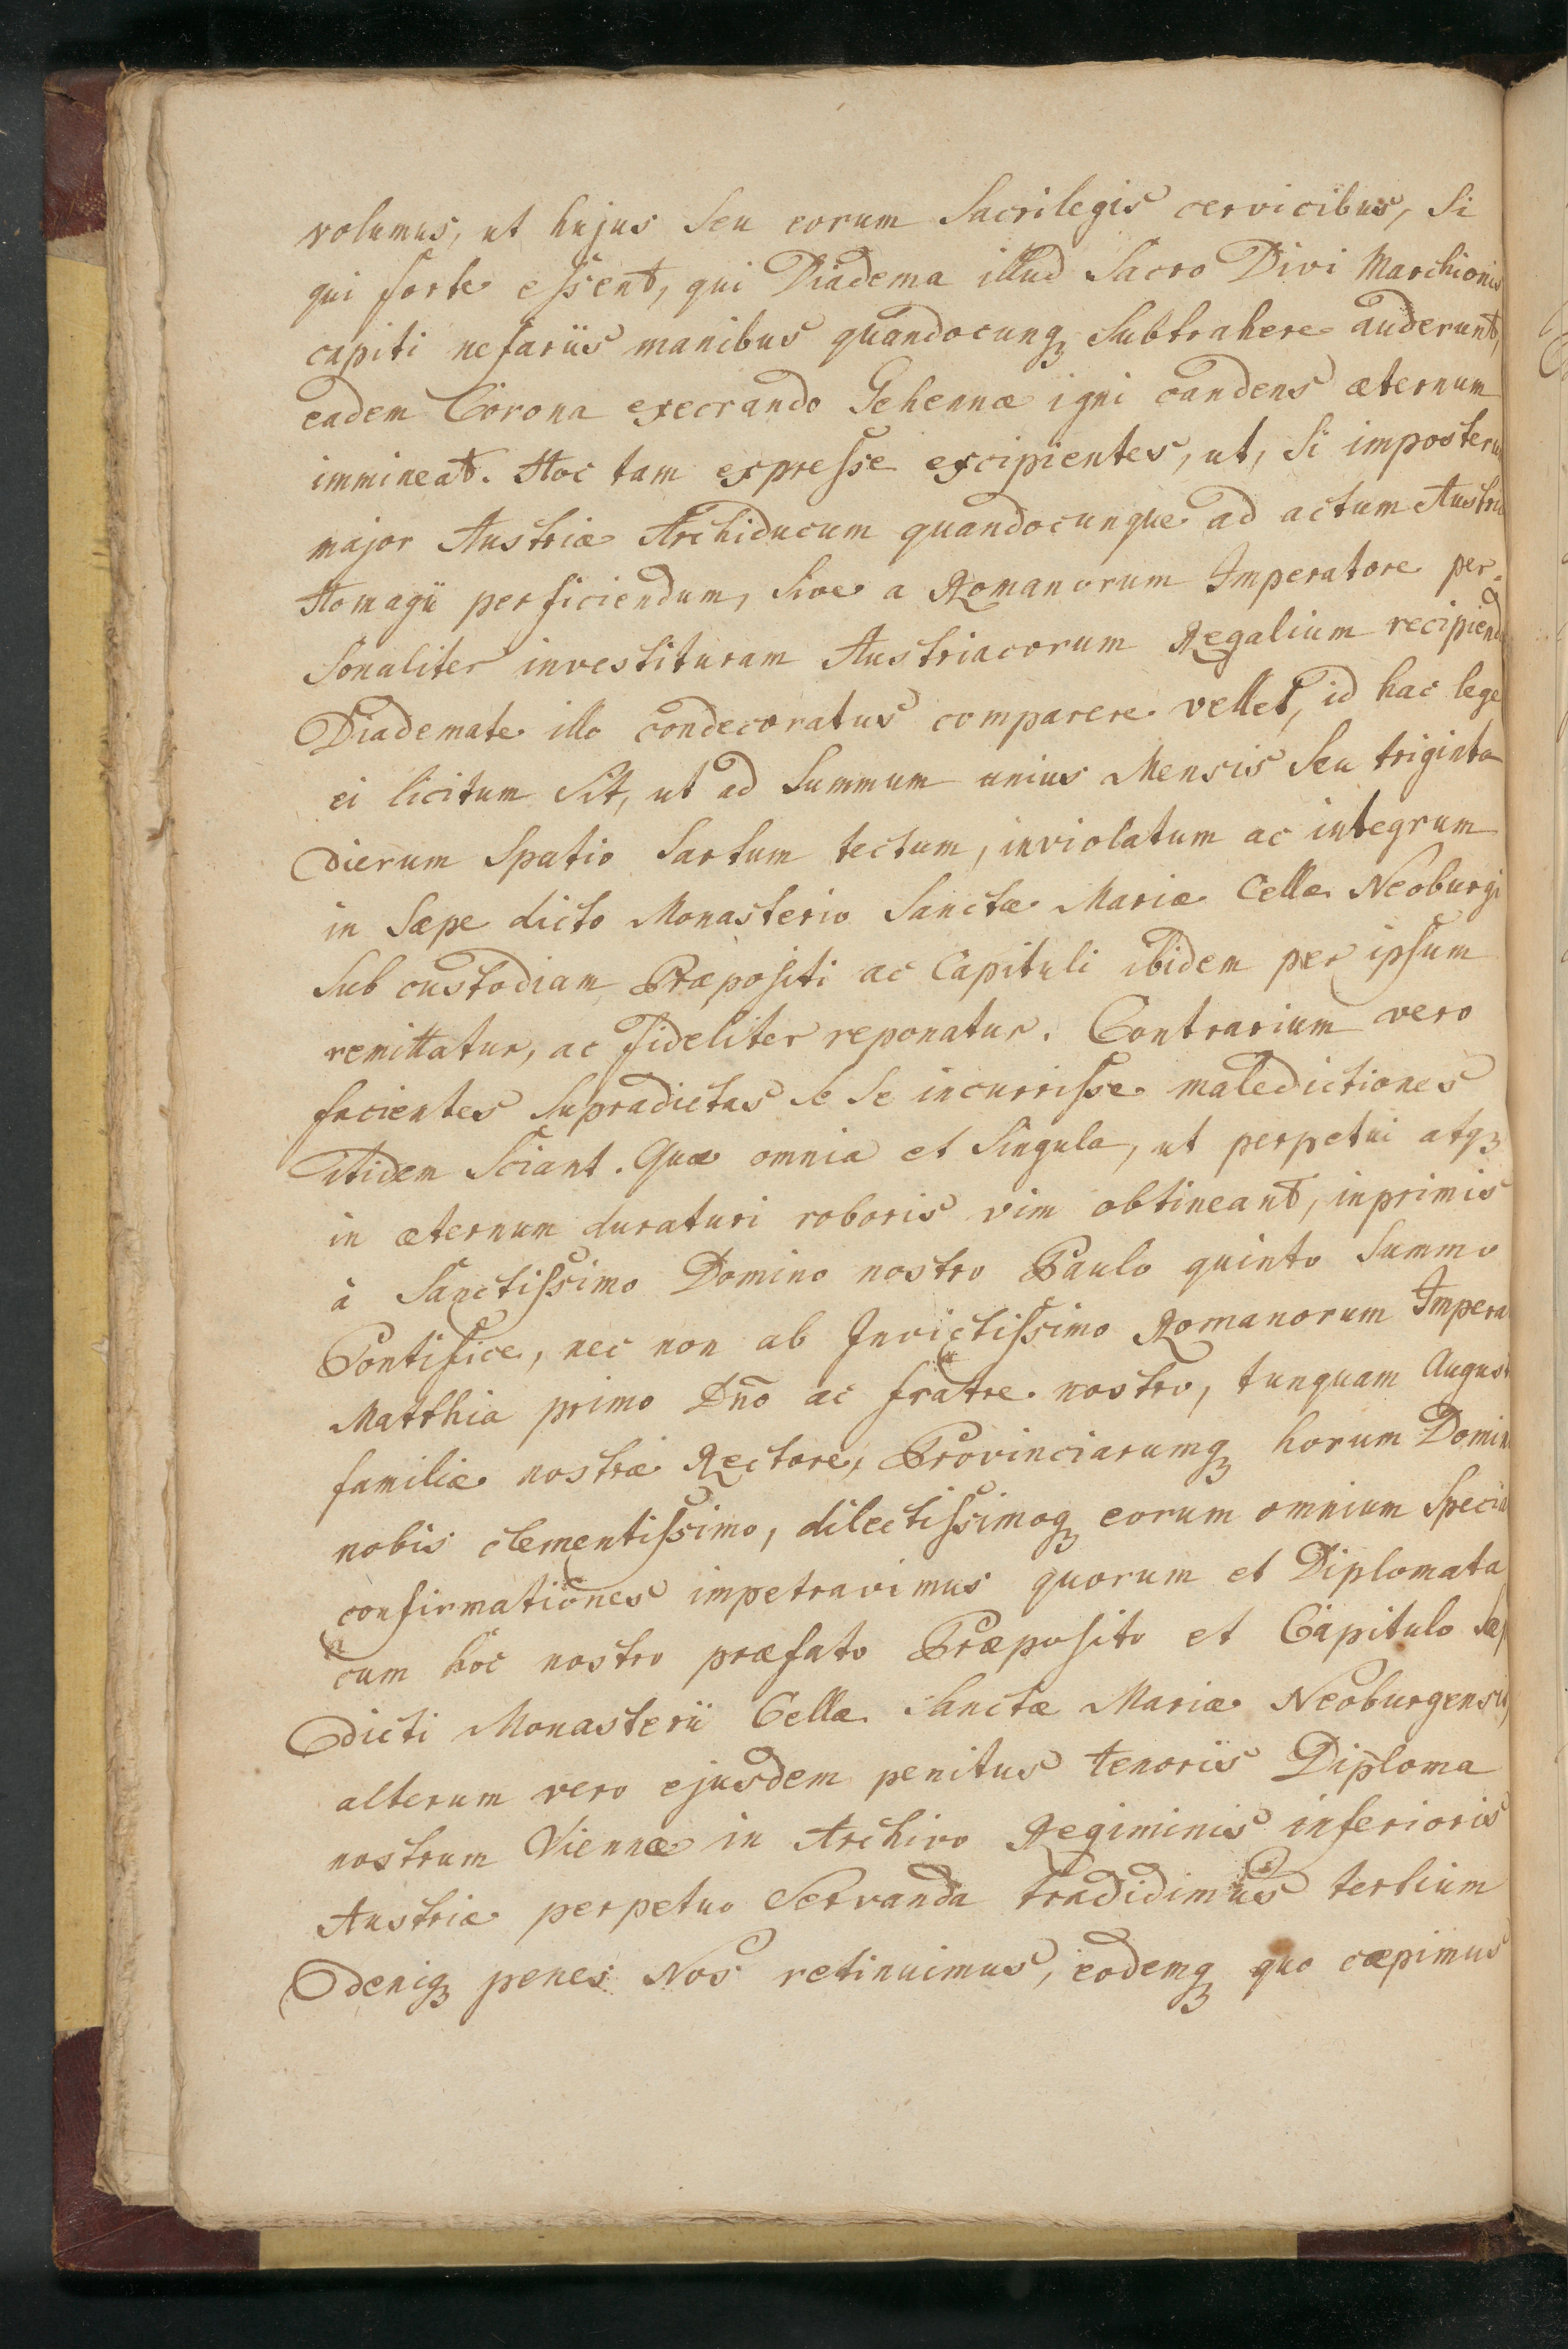 volumus, ut hujus seu eorum Sacrilegis cervicibus, Si
qui forte essent, qui Diadema illud Sacro Divi Marchionis
capiti nefariis manibus quandocunq; Subtrahere auderunt,
eadem Corona execrando Gehennæ igni candens æternum
immineat. Hoc tam expresse excipientes, ut, Si imposteru
major Austriæ Archiducum quandocunque ad actum Austri
Homagii perficiendum, Sive a Romanorum Imperatore per-
sonaliter investituram Austriacorum Regalium recipiend
Diademate illo condecoratus comparere vellet, id hac lege
ei licitum Sit, ut ad Summum unius Mensis Seu triginta
dierum Spatio Sartum tectum, inviolatum ac integrum
in Sæpe dicto Monasterio Sanctæ Mariæ Cellæ Neoburgi
Sub custodiam Præpositi ac Capituli ibidem per ipsum
remittatur, ac fideliter reponatur. Contrarium vero
facientes Supradictas se se incurrisse maledictiones
itidem Sciant. Quæ omnia et Singula, ut perpetui atq;
in æternum duraturi roboris vim obtineant, inprimis
à Sanctissimo Domino nostro Paulo quinto Summo
Pontifice, nec non ab Invictissimo Romanorum Impera
Matthia primo Dno ac fratre nostro, tanquam August
familiæ nostræ Rectore, Provinciarumq; horum Domin
nobis clementissimo, dilectissimoq; eorum omnium Specia
confirmationes impetravimus quorum et Diplomata
cum hoc nostro præfato Præposito et Capitulo Sæp
dicti Monasterii Cellæ Sanctæ Mariæ Neoburgensis,
alterum vero ejusdem penitus tenoris Diploma
nostrum Viennæ in Archivo Regiminis inferioris
Austriæ perpetuo Servanda tradidimus tertium
deniq; penes Nos retinuimus, eodemq; quo cæpimus